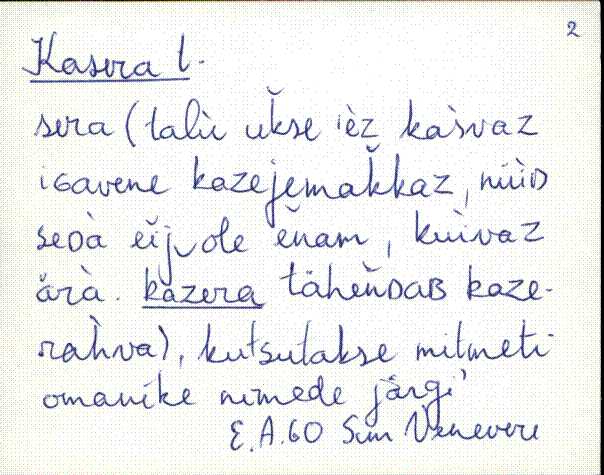 2
Kasera l.
sera (talù ukse èz kàsvaz
iGavene kazejemak̆kaz, nüùD
seDà eĭj‿ole ĕnam, kuìvaz
ärà. kazera tähĕnDAB kaze-
rahva), kutsutakse mitmeti
omanike nimede järgi'
E.A.60 Sim Venevere